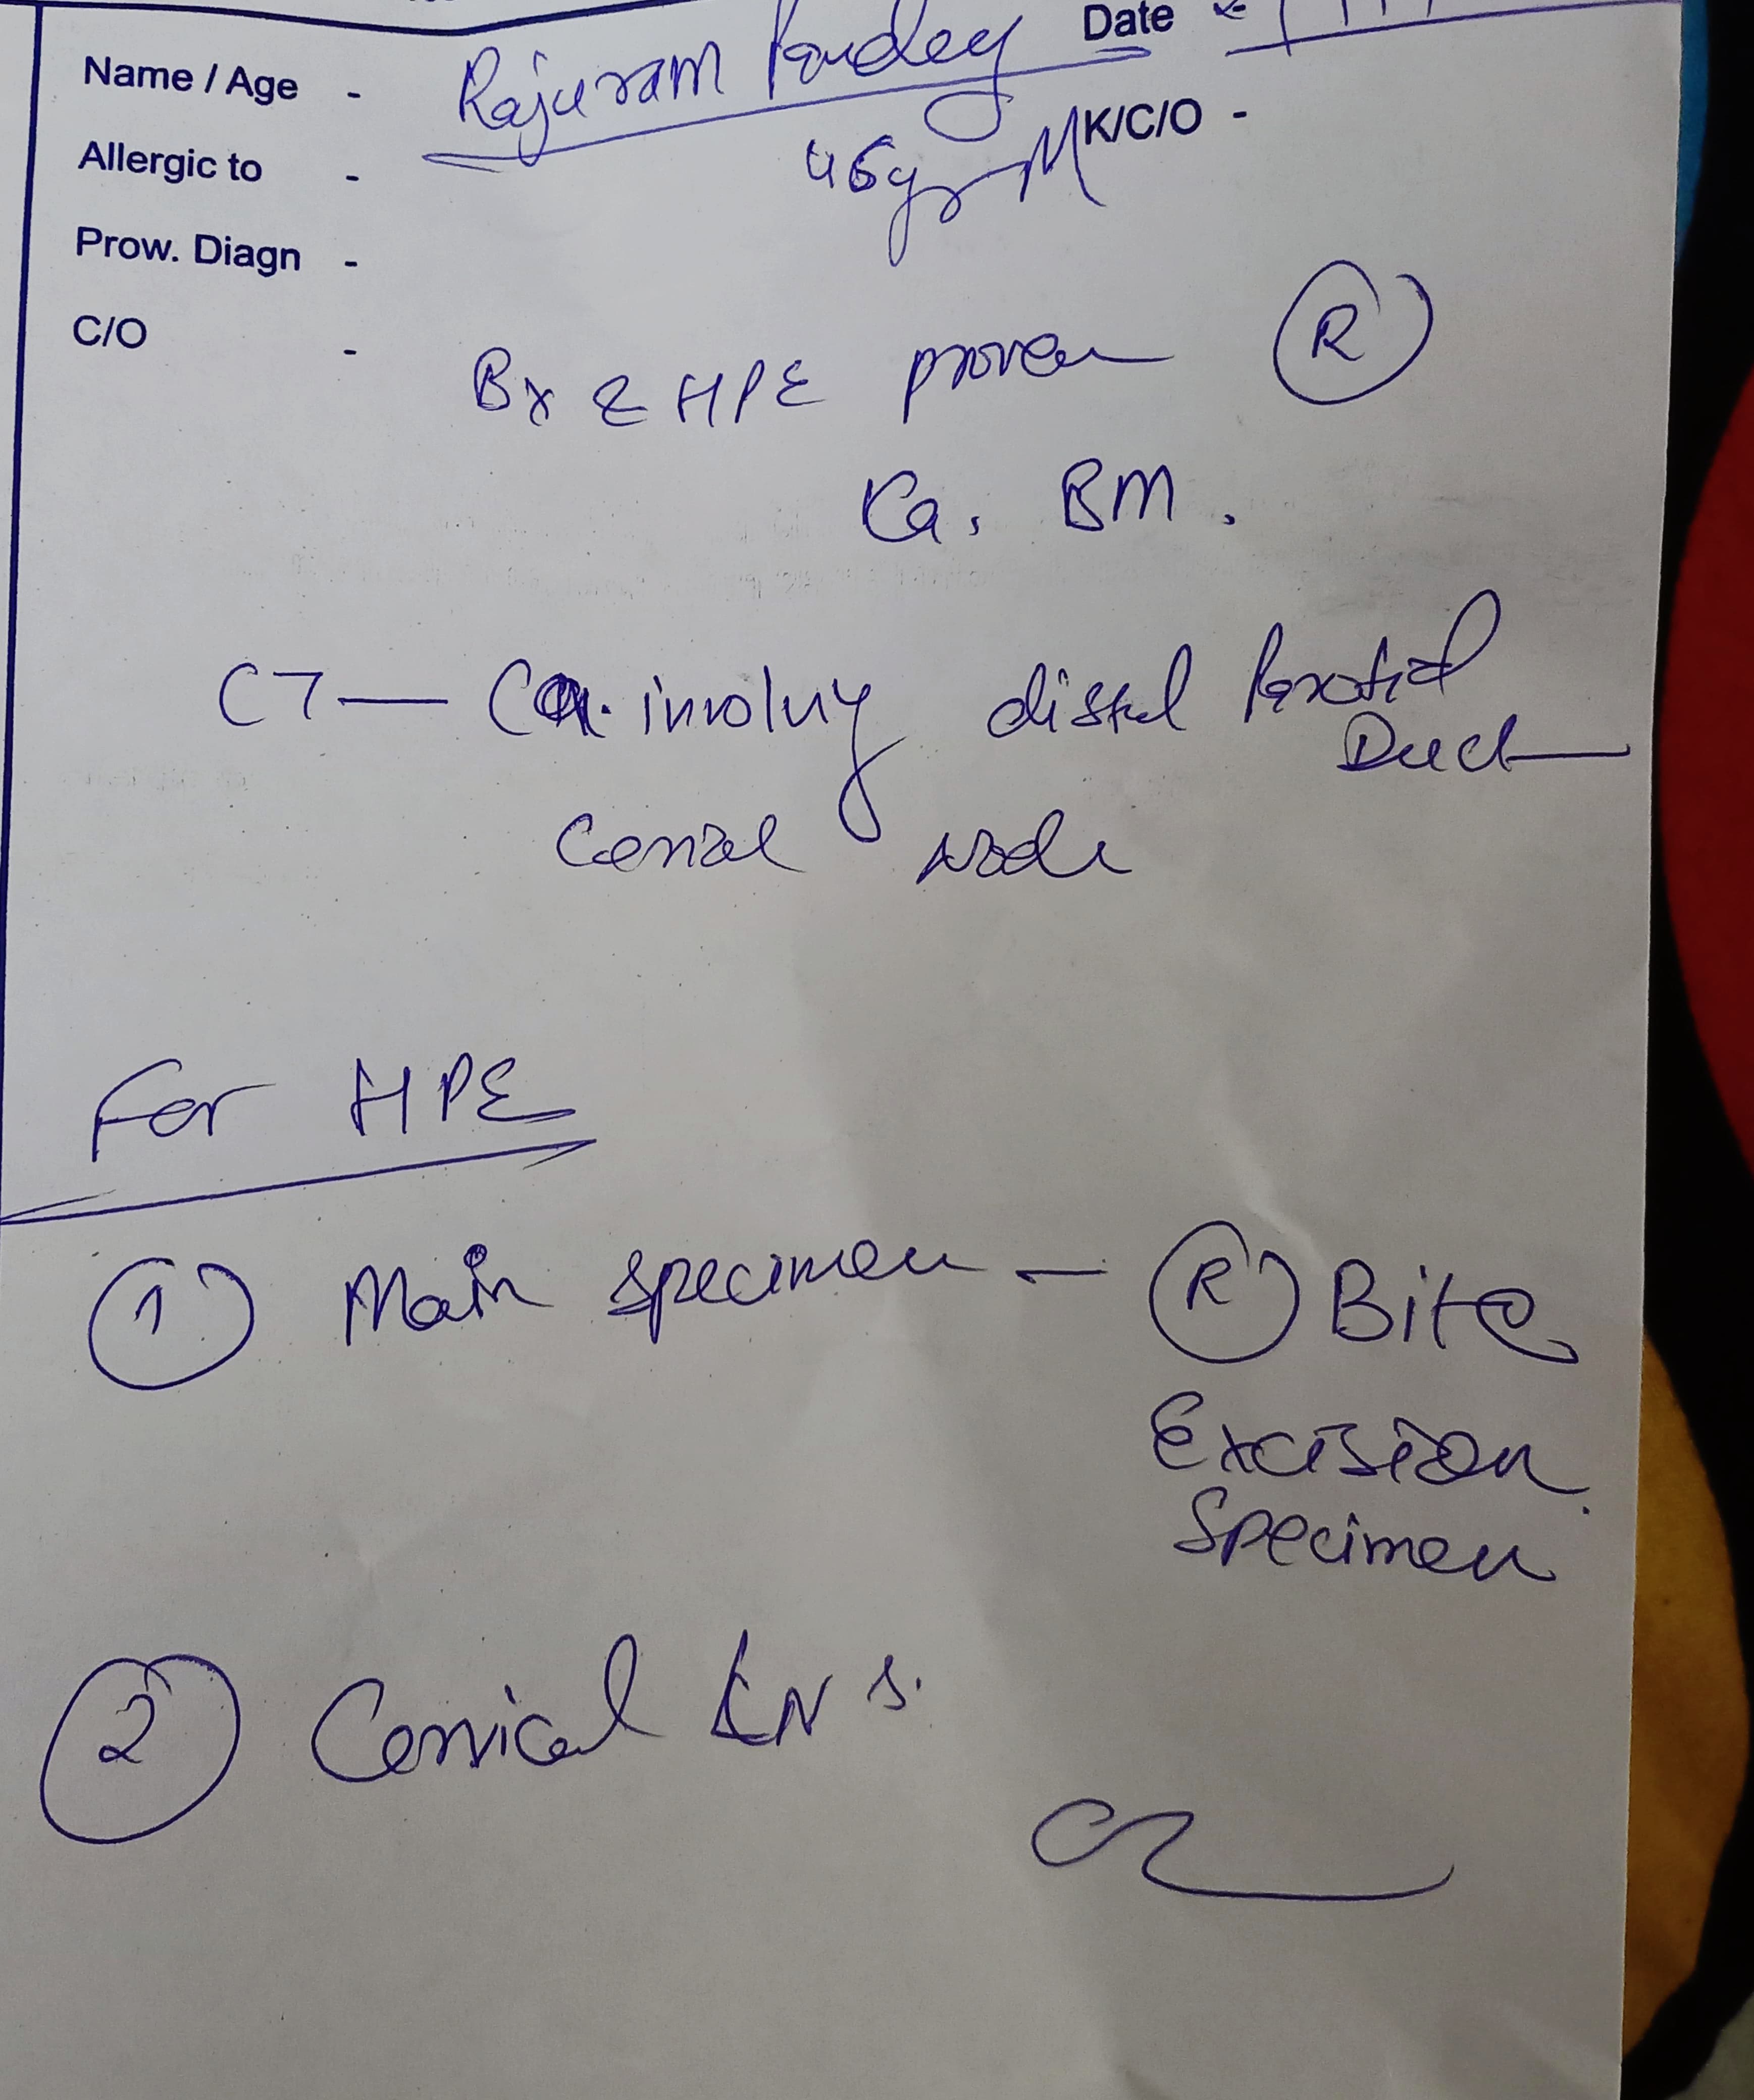 Date
Name / Age - Rajuram Pandey
K/C/O -
Allergic to - 46yr M
Prow. Diagn -
C/O -
Bx & HPE proven R
Ca. BM.
CT — Ca. involvy distal Parotid
Duct
Cervical node
For HPE
1 Main specimen — R Bite
Excision
Specimen
2 Cervical LNs.